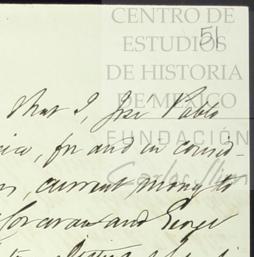 CENTRO DE
ESTUDIOS
DE HISTORIA
DE MÉXICO
FUNDACIÓN
Carlos Slim
51
that I, José Pablo
for and in consid-
current money to
and George